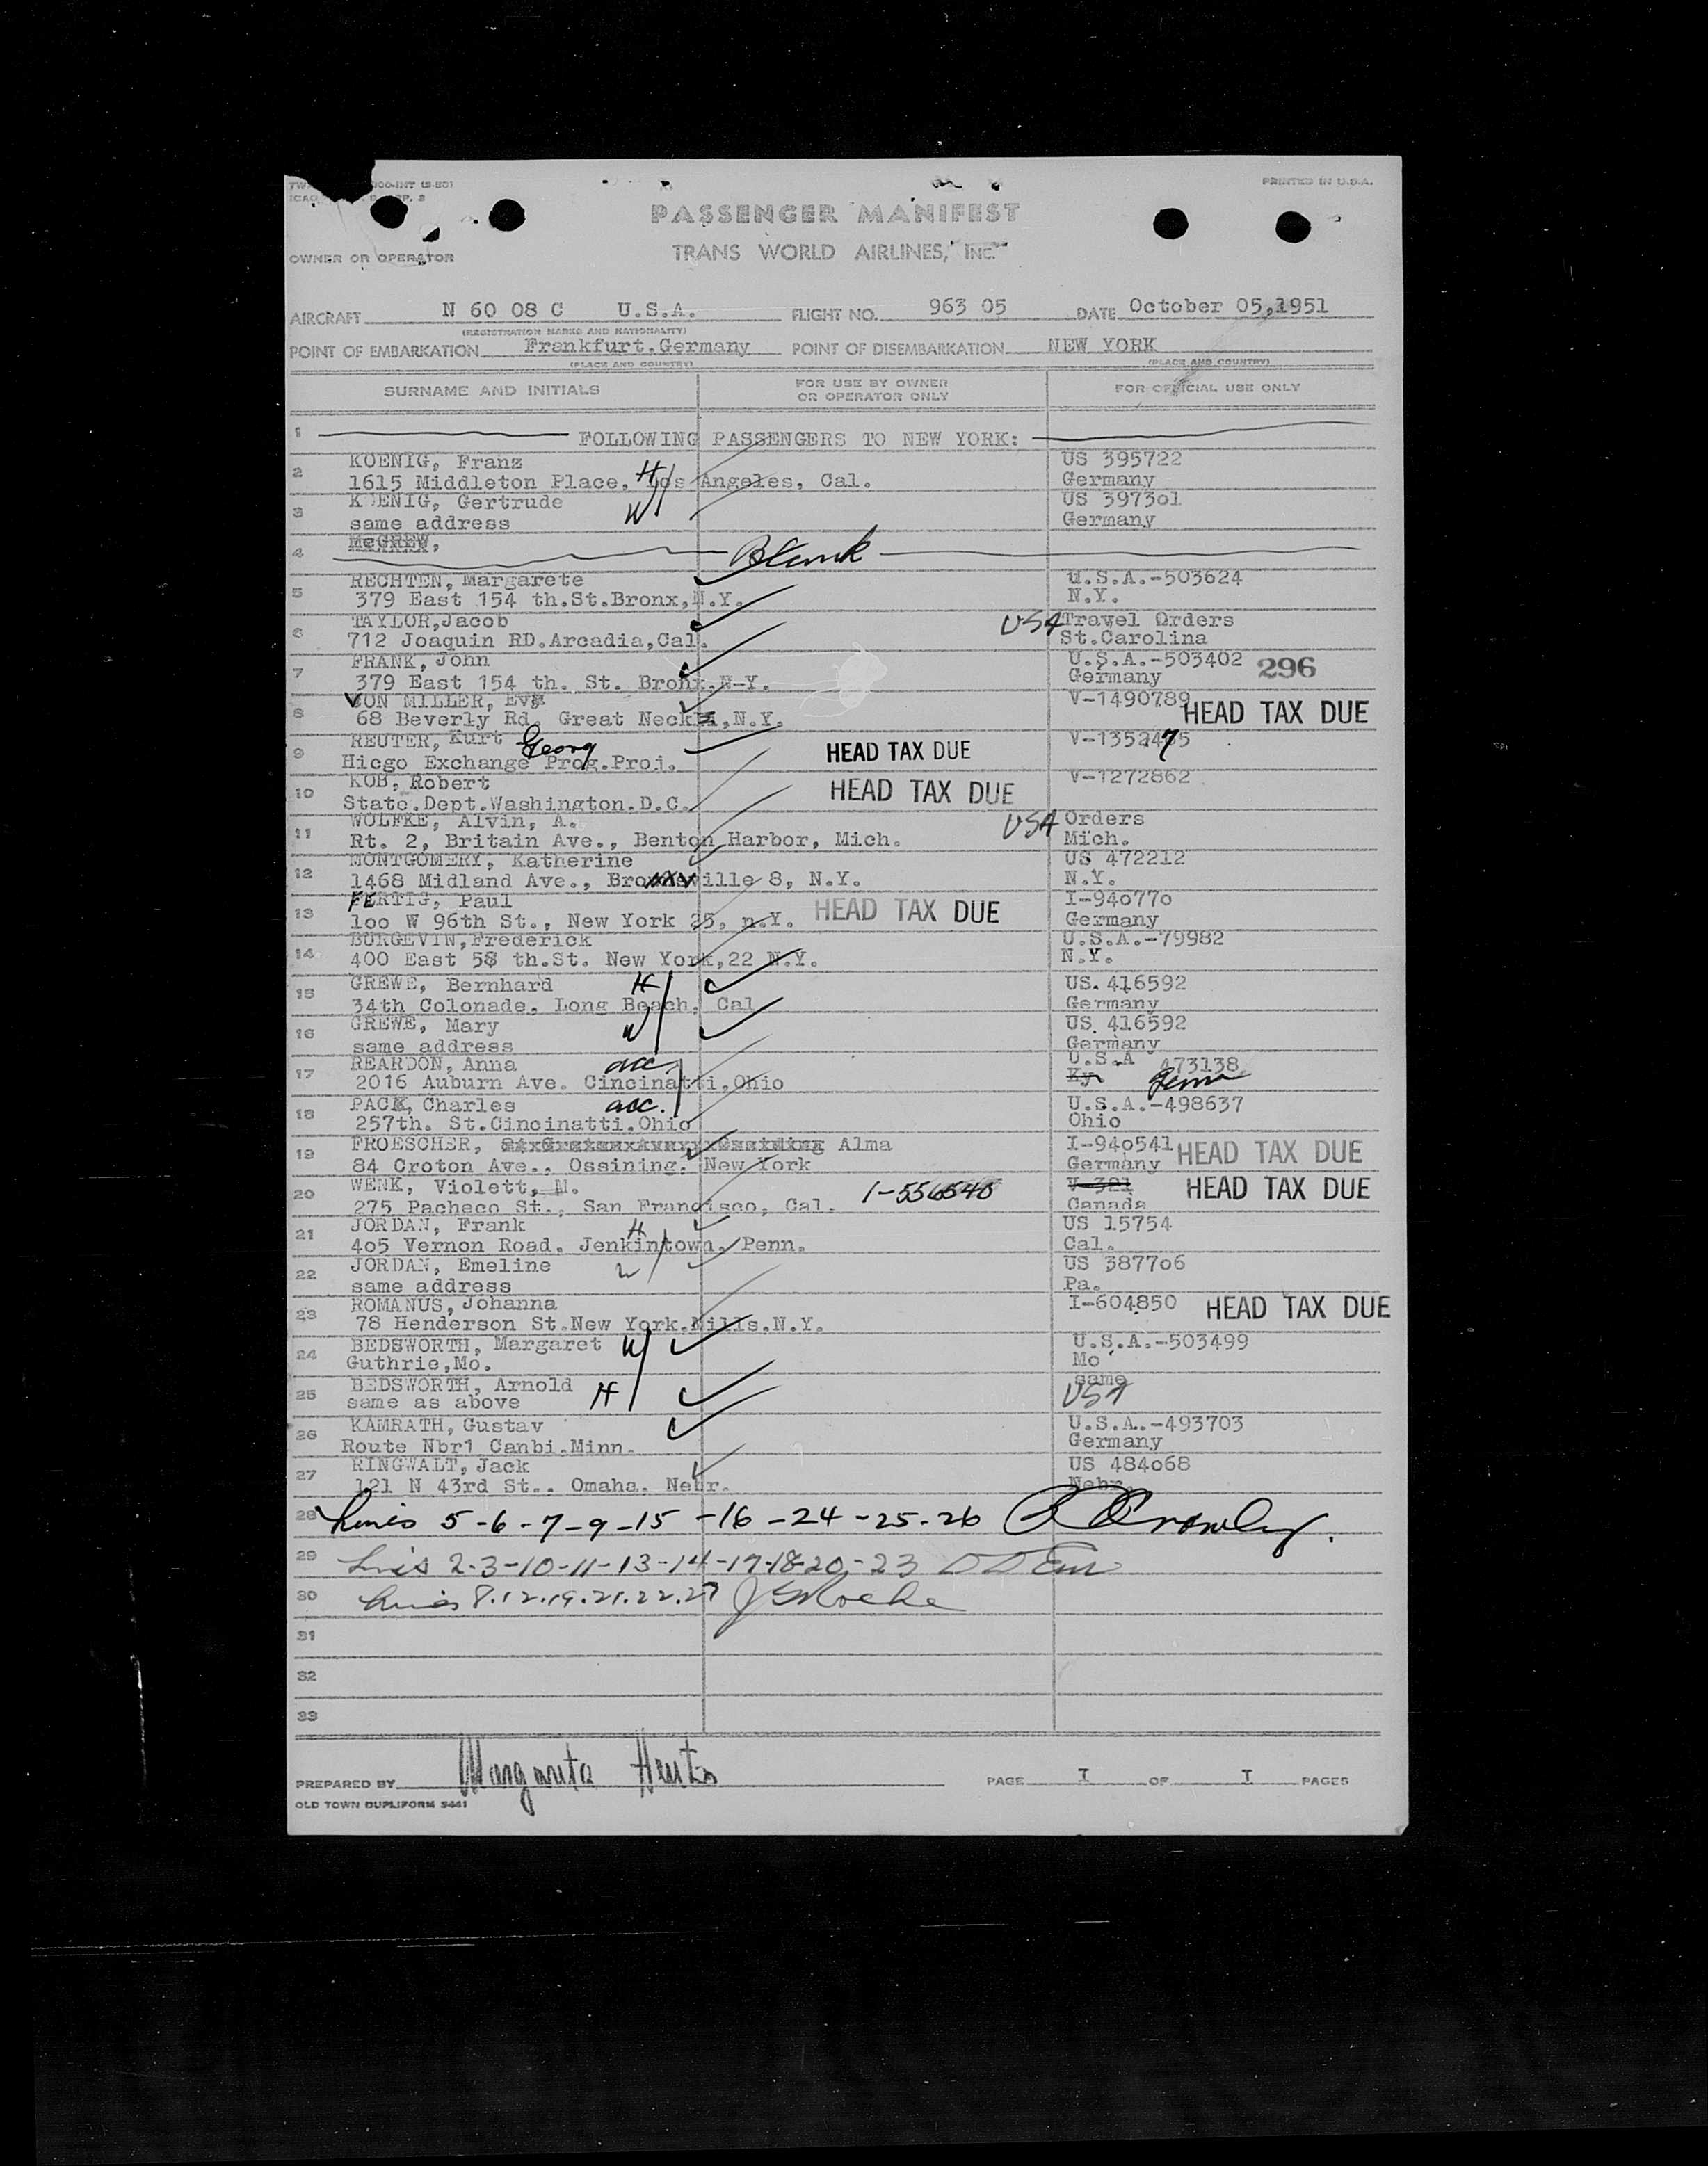 PRINTED IN U.S.A.
PASSENGER MANIFEST
TRANS WORLD AIRLINES, INC.
OWNER OR OPERATOR
AIRCRAFT N 60 08 C U.S.A. FLIGHT NO. 963 05 DATE October 05,1951
(REGISTRATION MARKS AND NATIONALITY)
POINT OF EMBARKATION Frankfurt.Germany POINT OF DISEMBARKATION NEW YORK
(PLACE AND COUNTRY) (PLACE AND COUNTRY)
SURNAME AND INITIALS FOR USE BY OWNER OR OPERATOR ONLY FOR OFFICIAL USE ONLY
1 FOLLOWING PASSENGERS TO NEW YORK:
2 KOENIG, Franz H US 395722
1615 Middleton Place, Los Angeles, Cal. Germany
3 KOENIG, Gertrude US 3973o1
same address W Germany
4 McGREW, Blank
5 RECHTEN, Margarete U.S.A.-503624
379 East 154 th.St.Bronx,N.Y. N.Y.
6 TAYLOR,Jacob USA Travel Orders
712 Joaquin RD.Arcadia,Cal. St.Carolina
7 FRANK, John U.S.A.-503402 296
379 East 154 th. St. Bronx.N-Y. Germany
8 VON MILLER, Eva V-1490789 HEAD TAX DUE
68 Beverly Rd. Great Neck,N.Y.
9 REUTER, Kurt Georg HEAD TAX DUE V-1352475
Hicgo Exchange Prog.Proj.
10 KOB, Robert HEAD TAX DUE V-1272862
State.Dept.Washington.D.C.
11 WOLFKE, Alvin, A. USA Orders
Rt. 2, Britain Ave., Benton Harbor, Mich. Mich.
12 MONTGOMERY, Katherine US 472212
1468 Midland Ave., Bronxville 8, N.Y. N.Y.
13 FERTIG, Paul HEAD TAX DUE I-94o77o
1oo W 96th St., New York 25, n.Y. Germany
14 BURGEVIN,Frederick U.S.A.-79982
400 East 58 th.St. New York,22 N.Y. N.Y.
15 GREWE, Bernhard H US. 416592
34th Colonade. Long Beach. Cal Germany
16 GREWE, Mary W US. 416592
same address Germany
17 REARDON, Anna acc. U.S.A 473138
2016 Auburn Ave. Cincinatti,Ohio Ky
18 PACK, Charles acc. U.S.A.-498637
257th. St.Cincinatti.Ohio Ohio
19 FROESCHER, Alma I-94o541 HEAD TAX DUE
84 Croton Ave., Ossining. New York Germany
20 WENK, Violett, M. 1-556540 V-321 HEAD TAX DUE
275 Pacheco St., San Francisco, Cal. Canada
21 JORDAN, Frank H US 15754
4o5 Vernon Road. Jenkintown. Penn. Cal.
22 JORDAN, Emeline W US 3877o6
same address Pa.
23 ROMANUS, Johanna I-604850 HEAD TAX DUE
78 Henderson St.New York.Mills.N.Y.
24 BEDSWORTH, Margaret W U.S.A.-503499
Guthrie,Mo. Mo
25 BEDSWORTH, Arnold H same
same as above USA
26 KAMRATH, Gustav U.S.A.-493703
Route Nbr1 Canbi.Minn. Germany
27 RINGWALT, Jack US 484o68
121 N 43rd St.. Omaha. Nebr. Nebr.
28 Lines 5-6-7-9-15-16-24-25-26
29 Lines 2-3-10-11-13-14-17-18-20-23
30 Lines 8.12.19.21.22.27
31
32
33
PREPARED BY PAGE I OF I PAGES
OLD TOWN DUPLIFORM